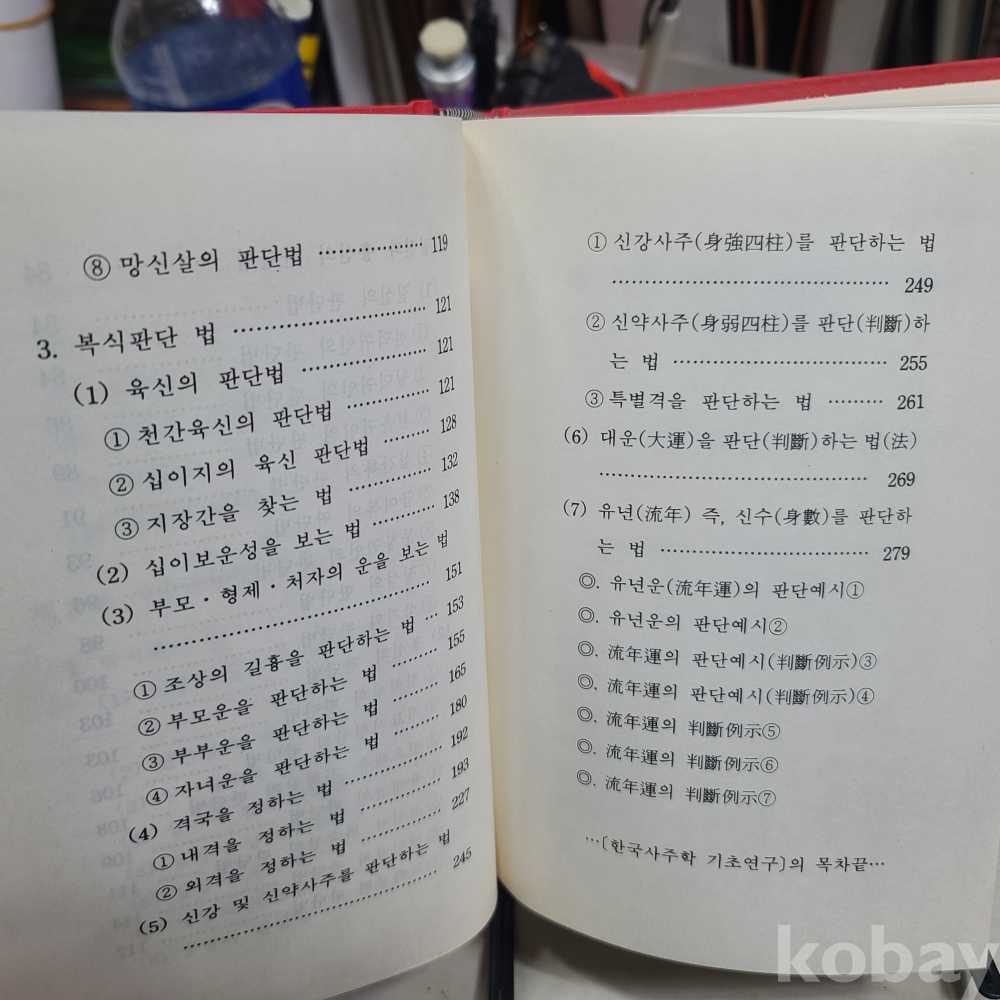 ⑧ 망신살의 판단법 ⋯⋯⋯⋯⋯ 119
3. 복식판단 법 ⋯⋯⋯⋯⋯⋯⋯⋯ 121
(1) 육신의 판단법 ⋯⋯⋯⋯⋯ 121
① 천간육신의 판단법 ⋯⋯⋯ 121
② 십이지의 육신 판단법 ⋯⋯ 128
③ 지장간을 찾는 법 ⋯⋯⋯ 132
(2) 십이보운성을 보는 법 ⋯⋯⋯ 138
(3) 부모·형제·처자의 운을 보는 법
⋯⋯⋯⋯⋯⋯⋯⋯⋯⋯⋯⋯ 151
① 조상의 길흉을 판단하는 법 ⋯ 153
② 부모운을 판단하는 법 ⋯⋯⋯ 155
③ 부부운을 판단하는 법 ⋯⋯⋯ 165
④ 자녀운을 판단하는 법 ⋯⋯⋯ 180
(4) 격국을 정하는 법 ⋯⋯⋯⋯⋯ 192
① 내격을 정하는 법 ⋯⋯⋯⋯ 193
② 외격을 정하는 법 ⋯⋯⋯⋯ 227
(5) 신강 및 신약사주를 판단하는 법
⋯⋯⋯⋯⋯⋯⋯⋯⋯⋯⋯⋯ 245
① 신강사주(身強四柱)를 판단하는 법
⋯⋯⋯⋯⋯⋯⋯⋯⋯⋯⋯⋯ 249
② 신약사주(身弱四柱)를 판단(判斷)하
는 법 ⋯⋯⋯⋯⋯⋯⋯⋯⋯⋯ 255
③ 특별격을 판단하는 법 ⋯⋯⋯ 261
(6) 대운(大運)을 판단(判斷)하는 법(法)
⋯⋯⋯⋯⋯⋯⋯⋯⋯⋯⋯⋯ 269
(7) 유년(流年) 즉, 신수(身數)를 판단하
는 법 ⋯⋯⋯⋯⋯⋯⋯⋯⋯⋯ 279
◎. 유년운(流年運)의 판단예시①
◎. 유년운의 판단예시②
◎. 流年運의 판단예시(判斷例示)③
◎. 流年運의 판단예시(判斷例示)④
◎. 流年運의 判斷例示⑤
◎. 流年運의 判斷例示⑥
◎. 流年運의 判斷例示⑦
⋯[한국사주학 기초연구]의 목차끝⋯
kobay